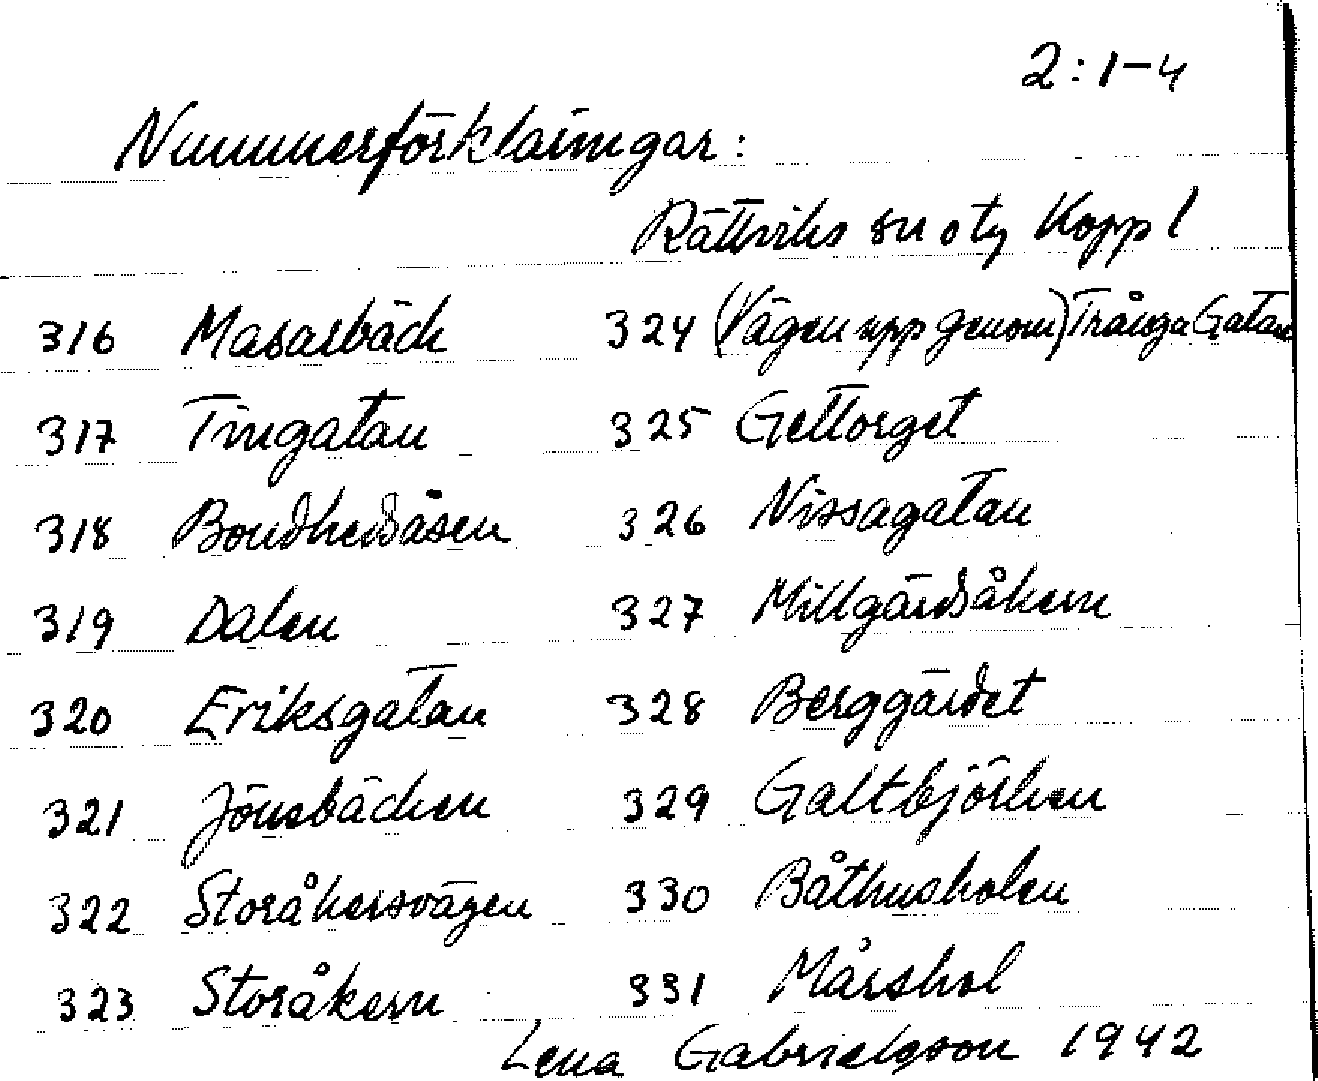 2:1-4
Nummerförklaringar:
Rättviks sn o tg Kopp l
316 Masarbäck 324 (Vägen upp genom) Trånga Gatan
317 Tingatan 325 Gettorget
318 Bondhedsåsen 326 Nissagatan
319 Dalen 327 Millgärdsåkern
320 Eriksgatan 328 Berggärdet
321 Jönsbäcken 329 Galtbjörken
322 Storåkersvägen 330 Båthusholen
323 Storåkern 331 Mårshol
Lena Gabrielsson 1942